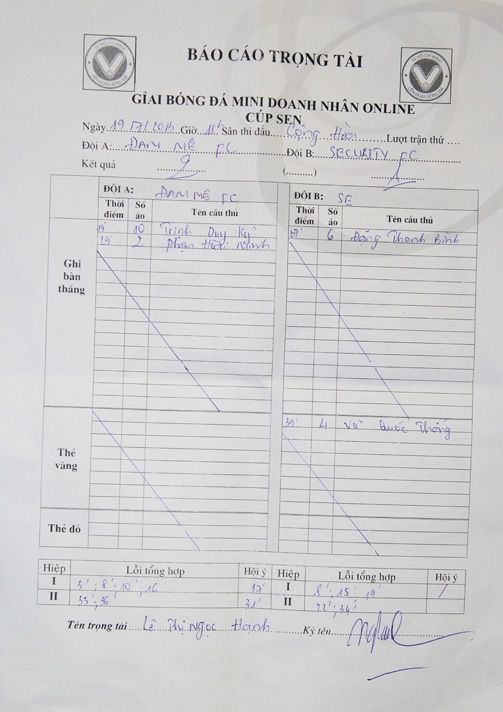 BÁO CÁO TRỌNG TÀI
GIẢI BÓNG ĐÁ MINI DOANH NHÂN ONLINE
CÚP SEN
Ngày 19/7/2013 Giờ 18h Sân thi đấu Cộng Hòa Lượt trận thứ ....
Đội A: ĐAM MÊ FC Đội B: SECURITY FC
Kết quả 2 (..........) 1
ĐỘI A: ĐAM MÊ FC ĐỘI B: SE
Thời điểm Số áo Tên cầu thủ Thời điểm Số áo Tên cầu thủ
Ghi bàn thắng
10 Trịnh Duy Kỳ 6 Đặng Thanh Bình
2 Phạm Ninh
Thẻ vàng
4 Võ Quốc Thống
Thẻ đỏ
Hiệp Lỗi tổng hợp Hội ý Hiệp Lỗi tổng hợp Hội ý
I 3'; 8'; 10'; 16' I 8'; 15'; 19'
II 31' II 22'; 34'
Tên trọng tài Lê Thị Ngọc Hạnh Ký tên